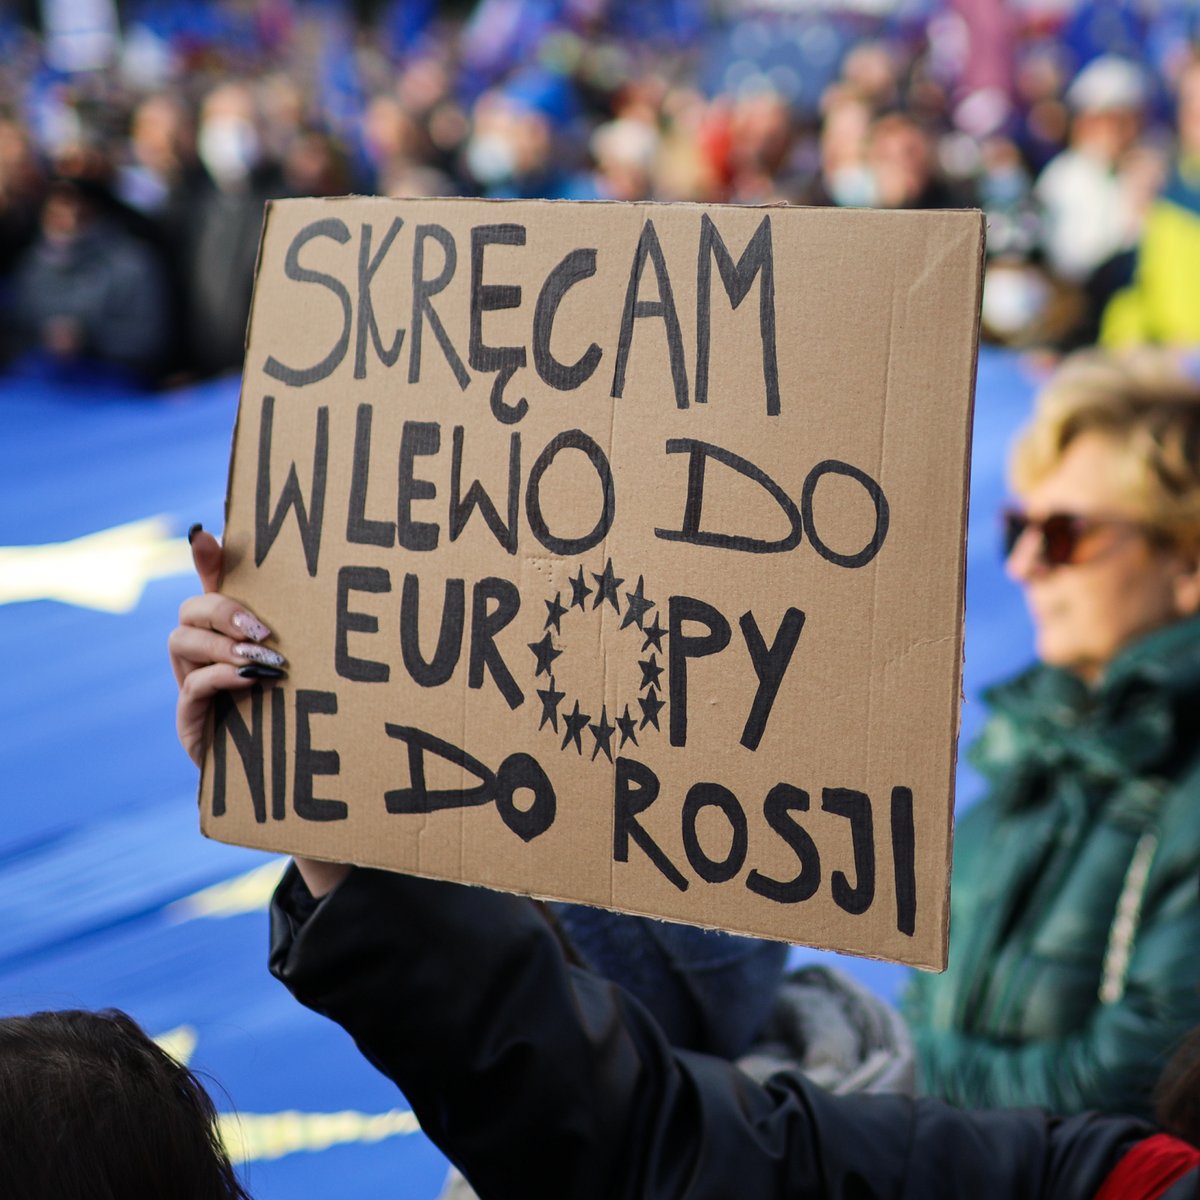 SKRĘCAM
W LEWO DO
EUROPY
NIE DO ROSJI